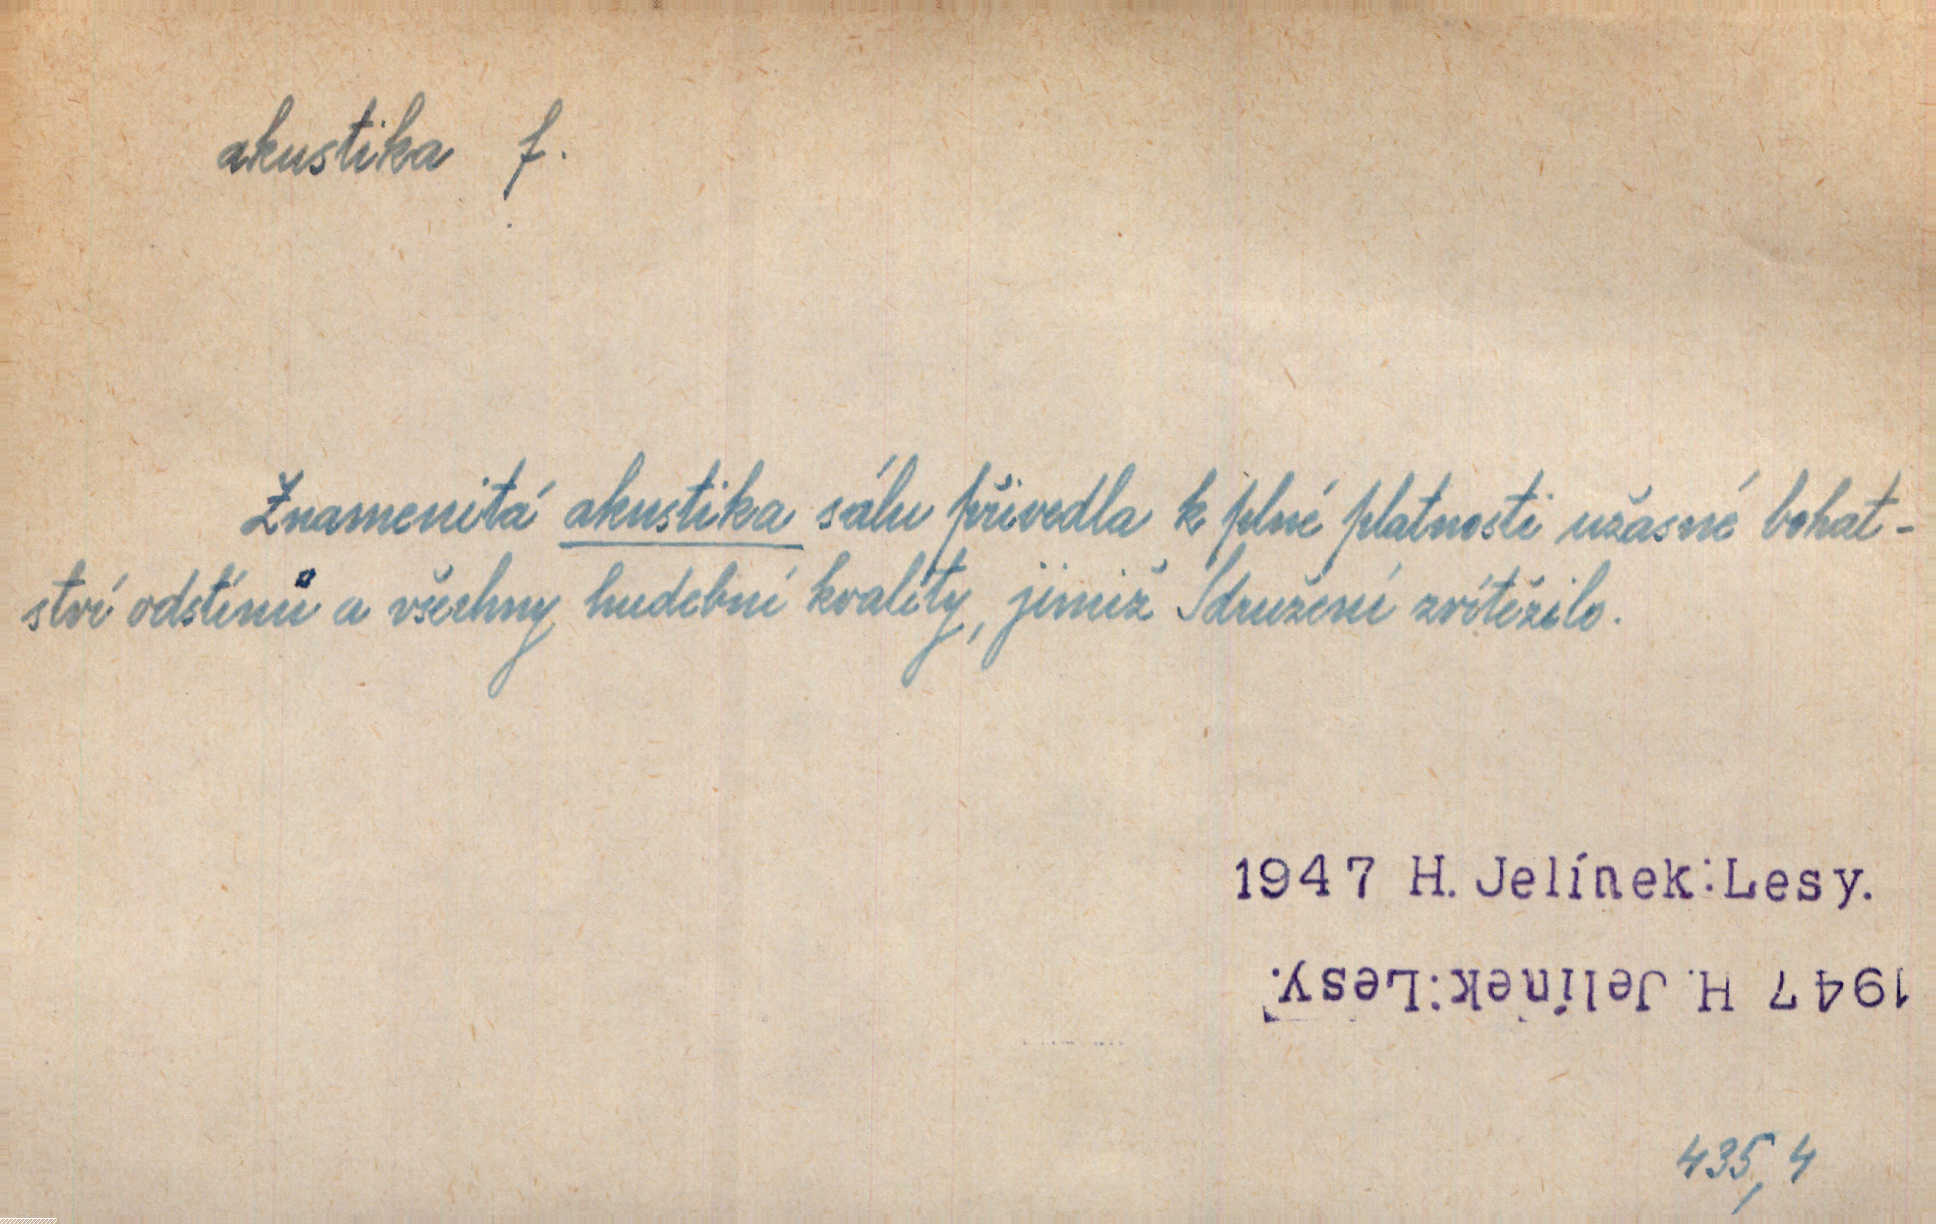 akustika f.
Znamenitá akustika sálu přivedla k plné platnosti užasné bohat-
ství odstínů a všechny hudební kvality, jimiž Sdružení zvítězilo.
1947 H. Jelínek:Lesy.
1947 H. Jelínek:Lesy.
435,4